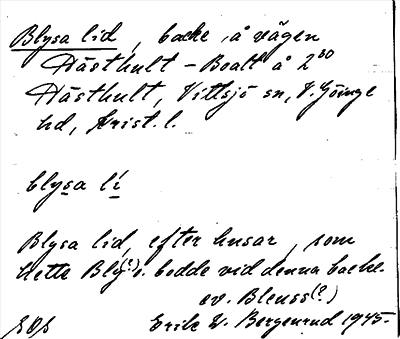 Blysa lid, backe å vägen
Hästhult - Boalt å 2
Hästhult, Vittsjö sn, V. Göinge
hd, Krist. l.
blysa lí
Blysa lid, efter husar, som
hette Bly(?) o. bodde vid denna backe.
ev. Bleuss(?)
Erik W. Bergenrud 1945.